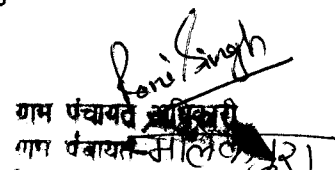 Roni Singh
ग्राम पंचायत अधिकारी
ग्राम पंचायत